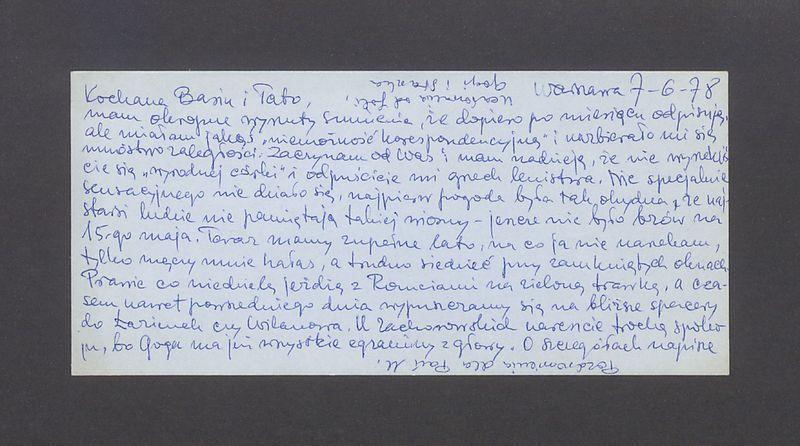 Warszawa 7-6-78
Kochana Basiu i Tato,
mam okropne wyrzuty sumienia, że dopiero po miesiącu odpisuję,
ale miałam jakąś „niemożność korespondencyjną” i nazbierało mi się
mnóstwo zaległości. Zaczynam od Was i mam nadzieję, że nie
cie się „wyrodnej córki” i odpuścicie mi grzech lenistwa. Nic specjalnie
sensacyjnego nie działo się, najpierw pogoda była tak ohydna, że naj-
starsi ludzie nie pamiętają takiej wiosny - jeszcze nie było bzów na
15-go maja. Teraz mamy zupełne lato, na co ja nie narzekam,
tylko męczy mnie hałas, a trudno siedzieć przy zamkniętych oknach.
Prawie co niedzielę jeżdżę z Romciami na zieloną trawkę, a cza-
sem nawet powszedniego dnia wypuszczamy się na bliższe spacery
do Łazienek czy Wilanowa. U Zachorowskich nareszcie trochę spoko-
ju, bo Goga ma już wszystkie egzaminy z głowy. O szczegółach napiszę
Pozdrowienia dla Pani M.
Ucałowania od
Gogi i Stanka